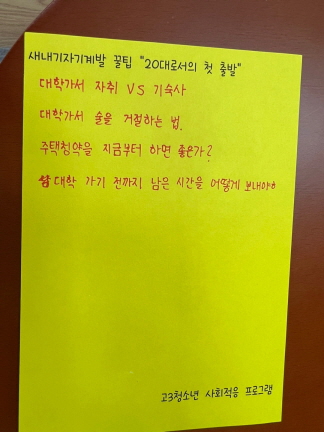 새내기자기계발 꿀팁 "20대로서의 첫 출발"
대학가서 자취 VS 기숙사
대학가서 술을 거절하는 법.
주택청약을 지금부터 하면 좋은가?
대학 가기 전까지 남은 시간을 어떻게 보내야
고3청소년 사회적응 프로그램